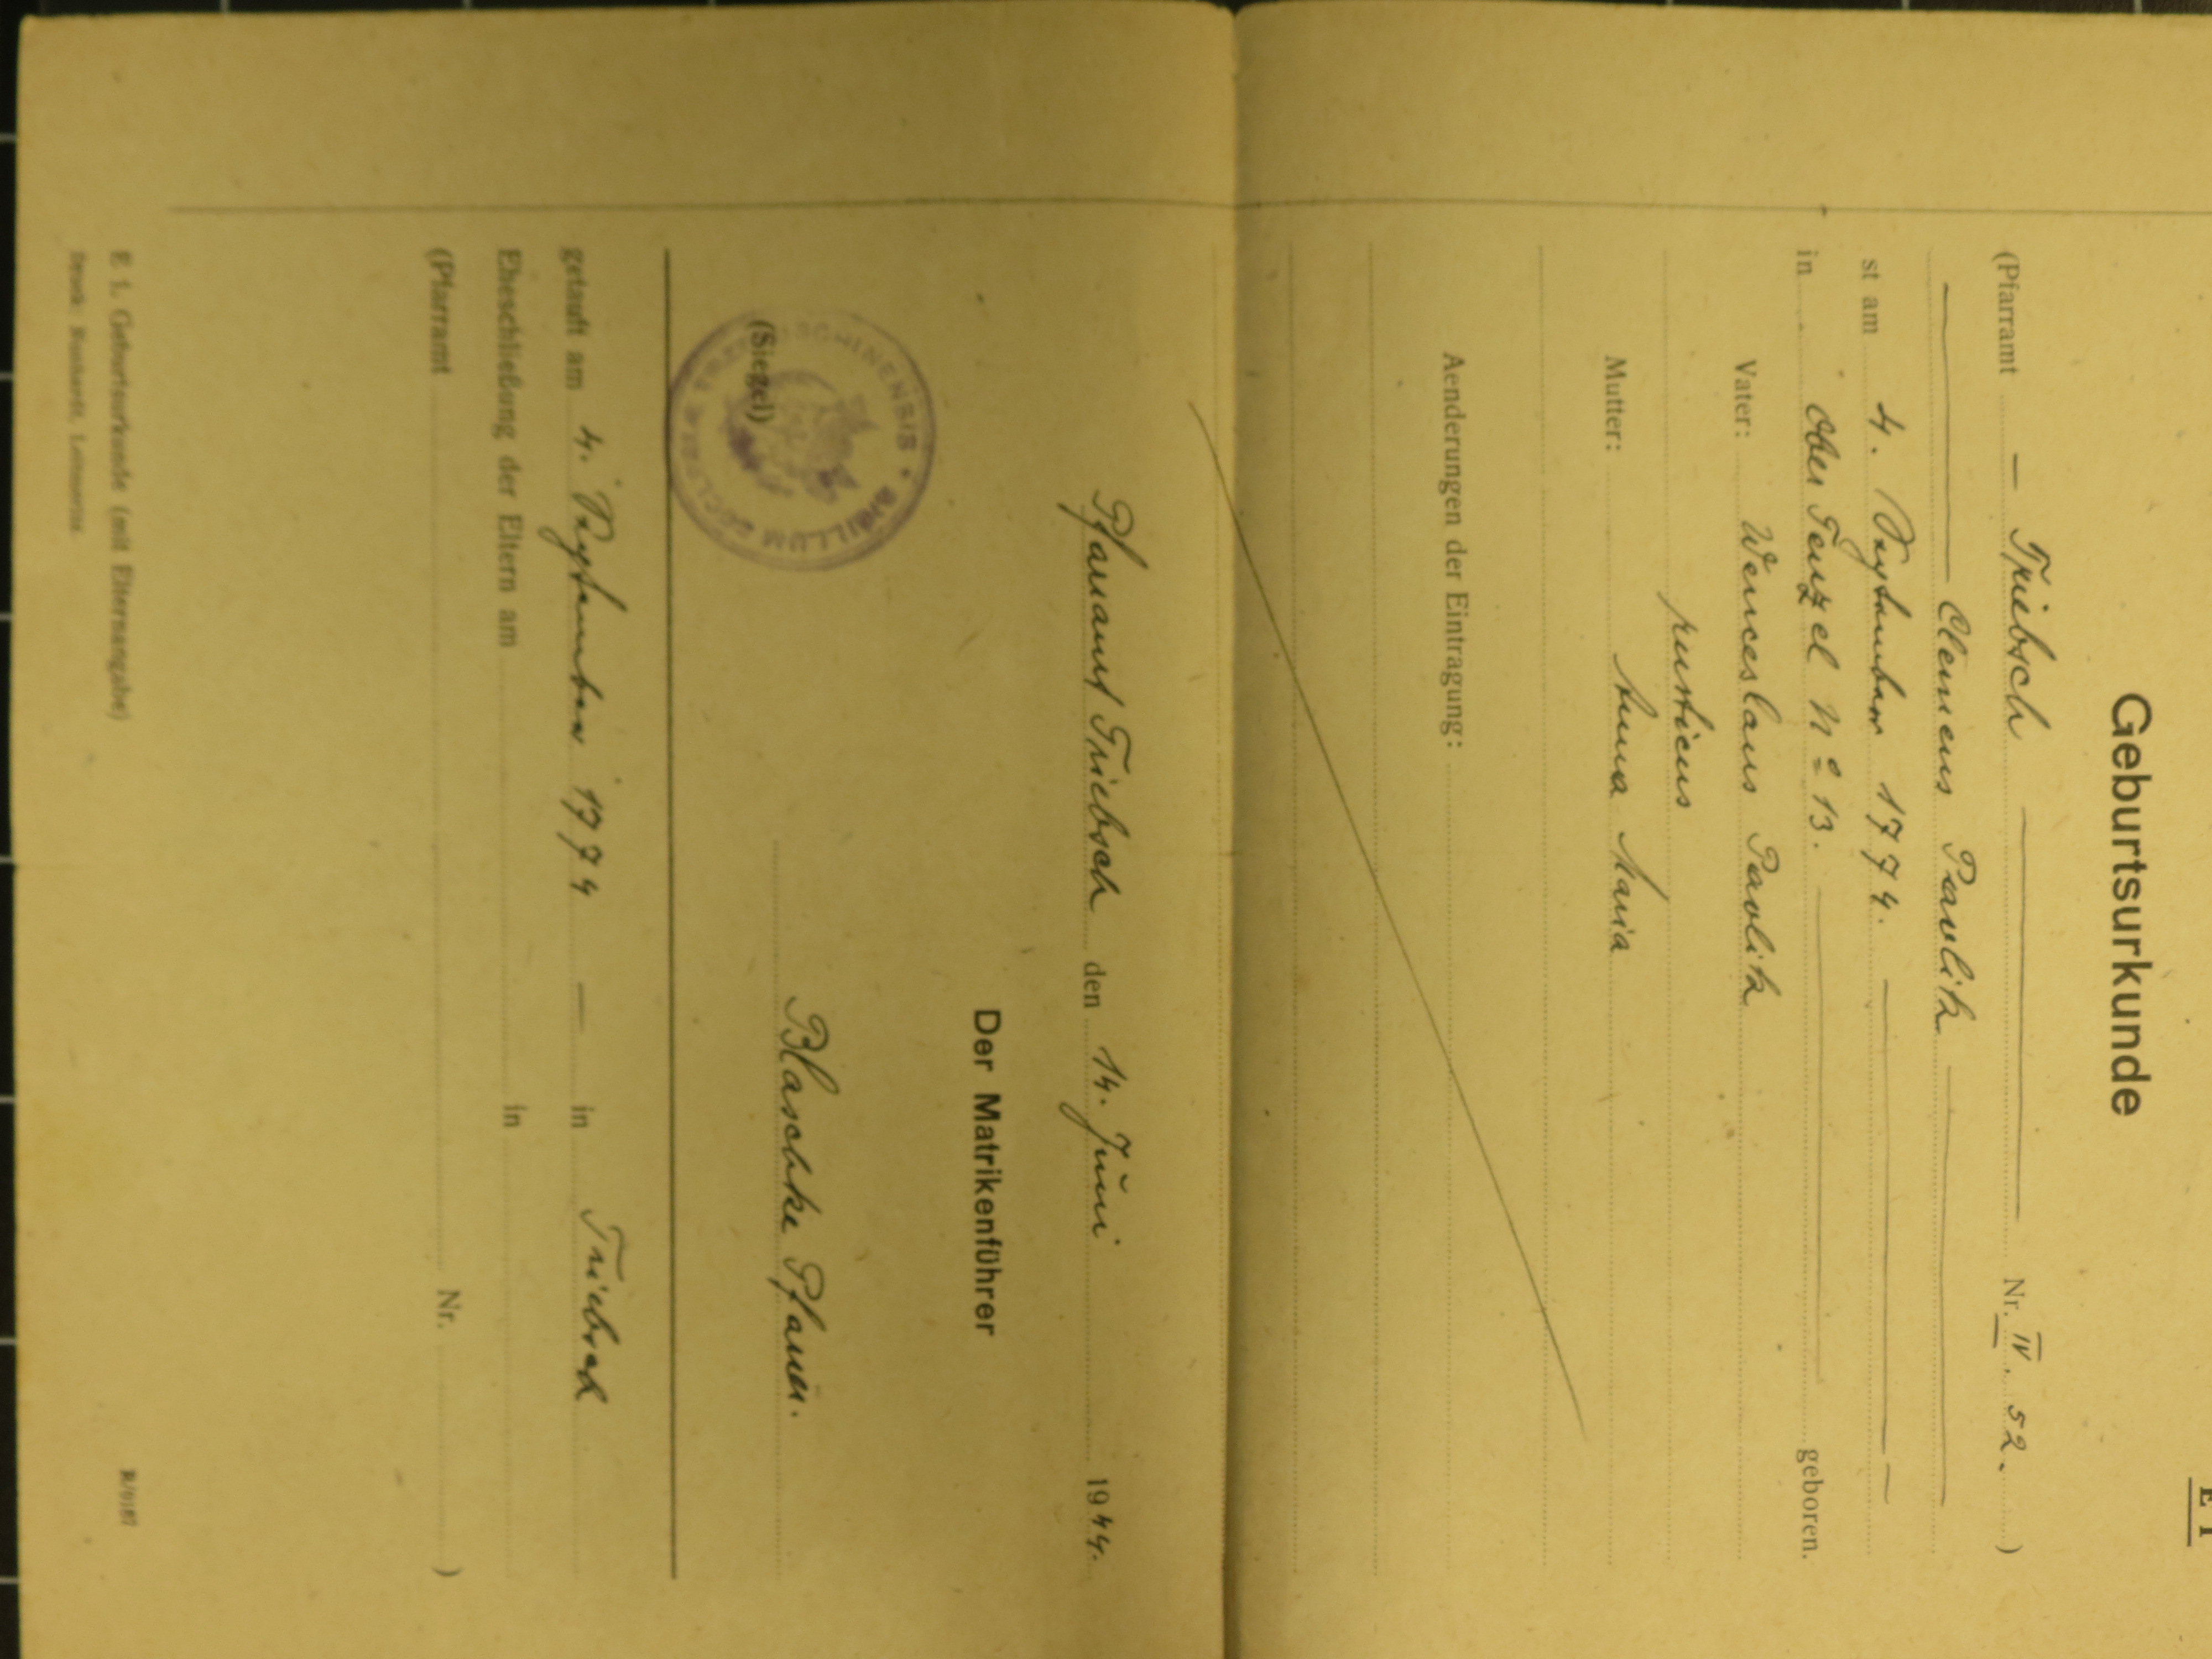 E 1
Geburtsurkunde
(Pfarramt — Triebsch — Nr. IV. 52. )
— Clemens Pavlik —
st am 4. September 1774. — —
in Ober Tenzel No 13. — geboren.
Vater: Wenceslaus Pavlik
rusticus
Mutter: Anna Maria
Aenderungen der Eintragung:
Pfarramt Triebsch den 14. Juni 1944.
Der Matrikenführer
SIGILLUM
(Siegel)
Blaschke Pfarrer.
getauft am 4. September 1774 — in Triebsch
Eheschließung der Eltern am in
(Pfarramt Nr. )
E 1. Geburtsurkunde (mit Elternangabe)
R/0187
Druck: Leitmeritz